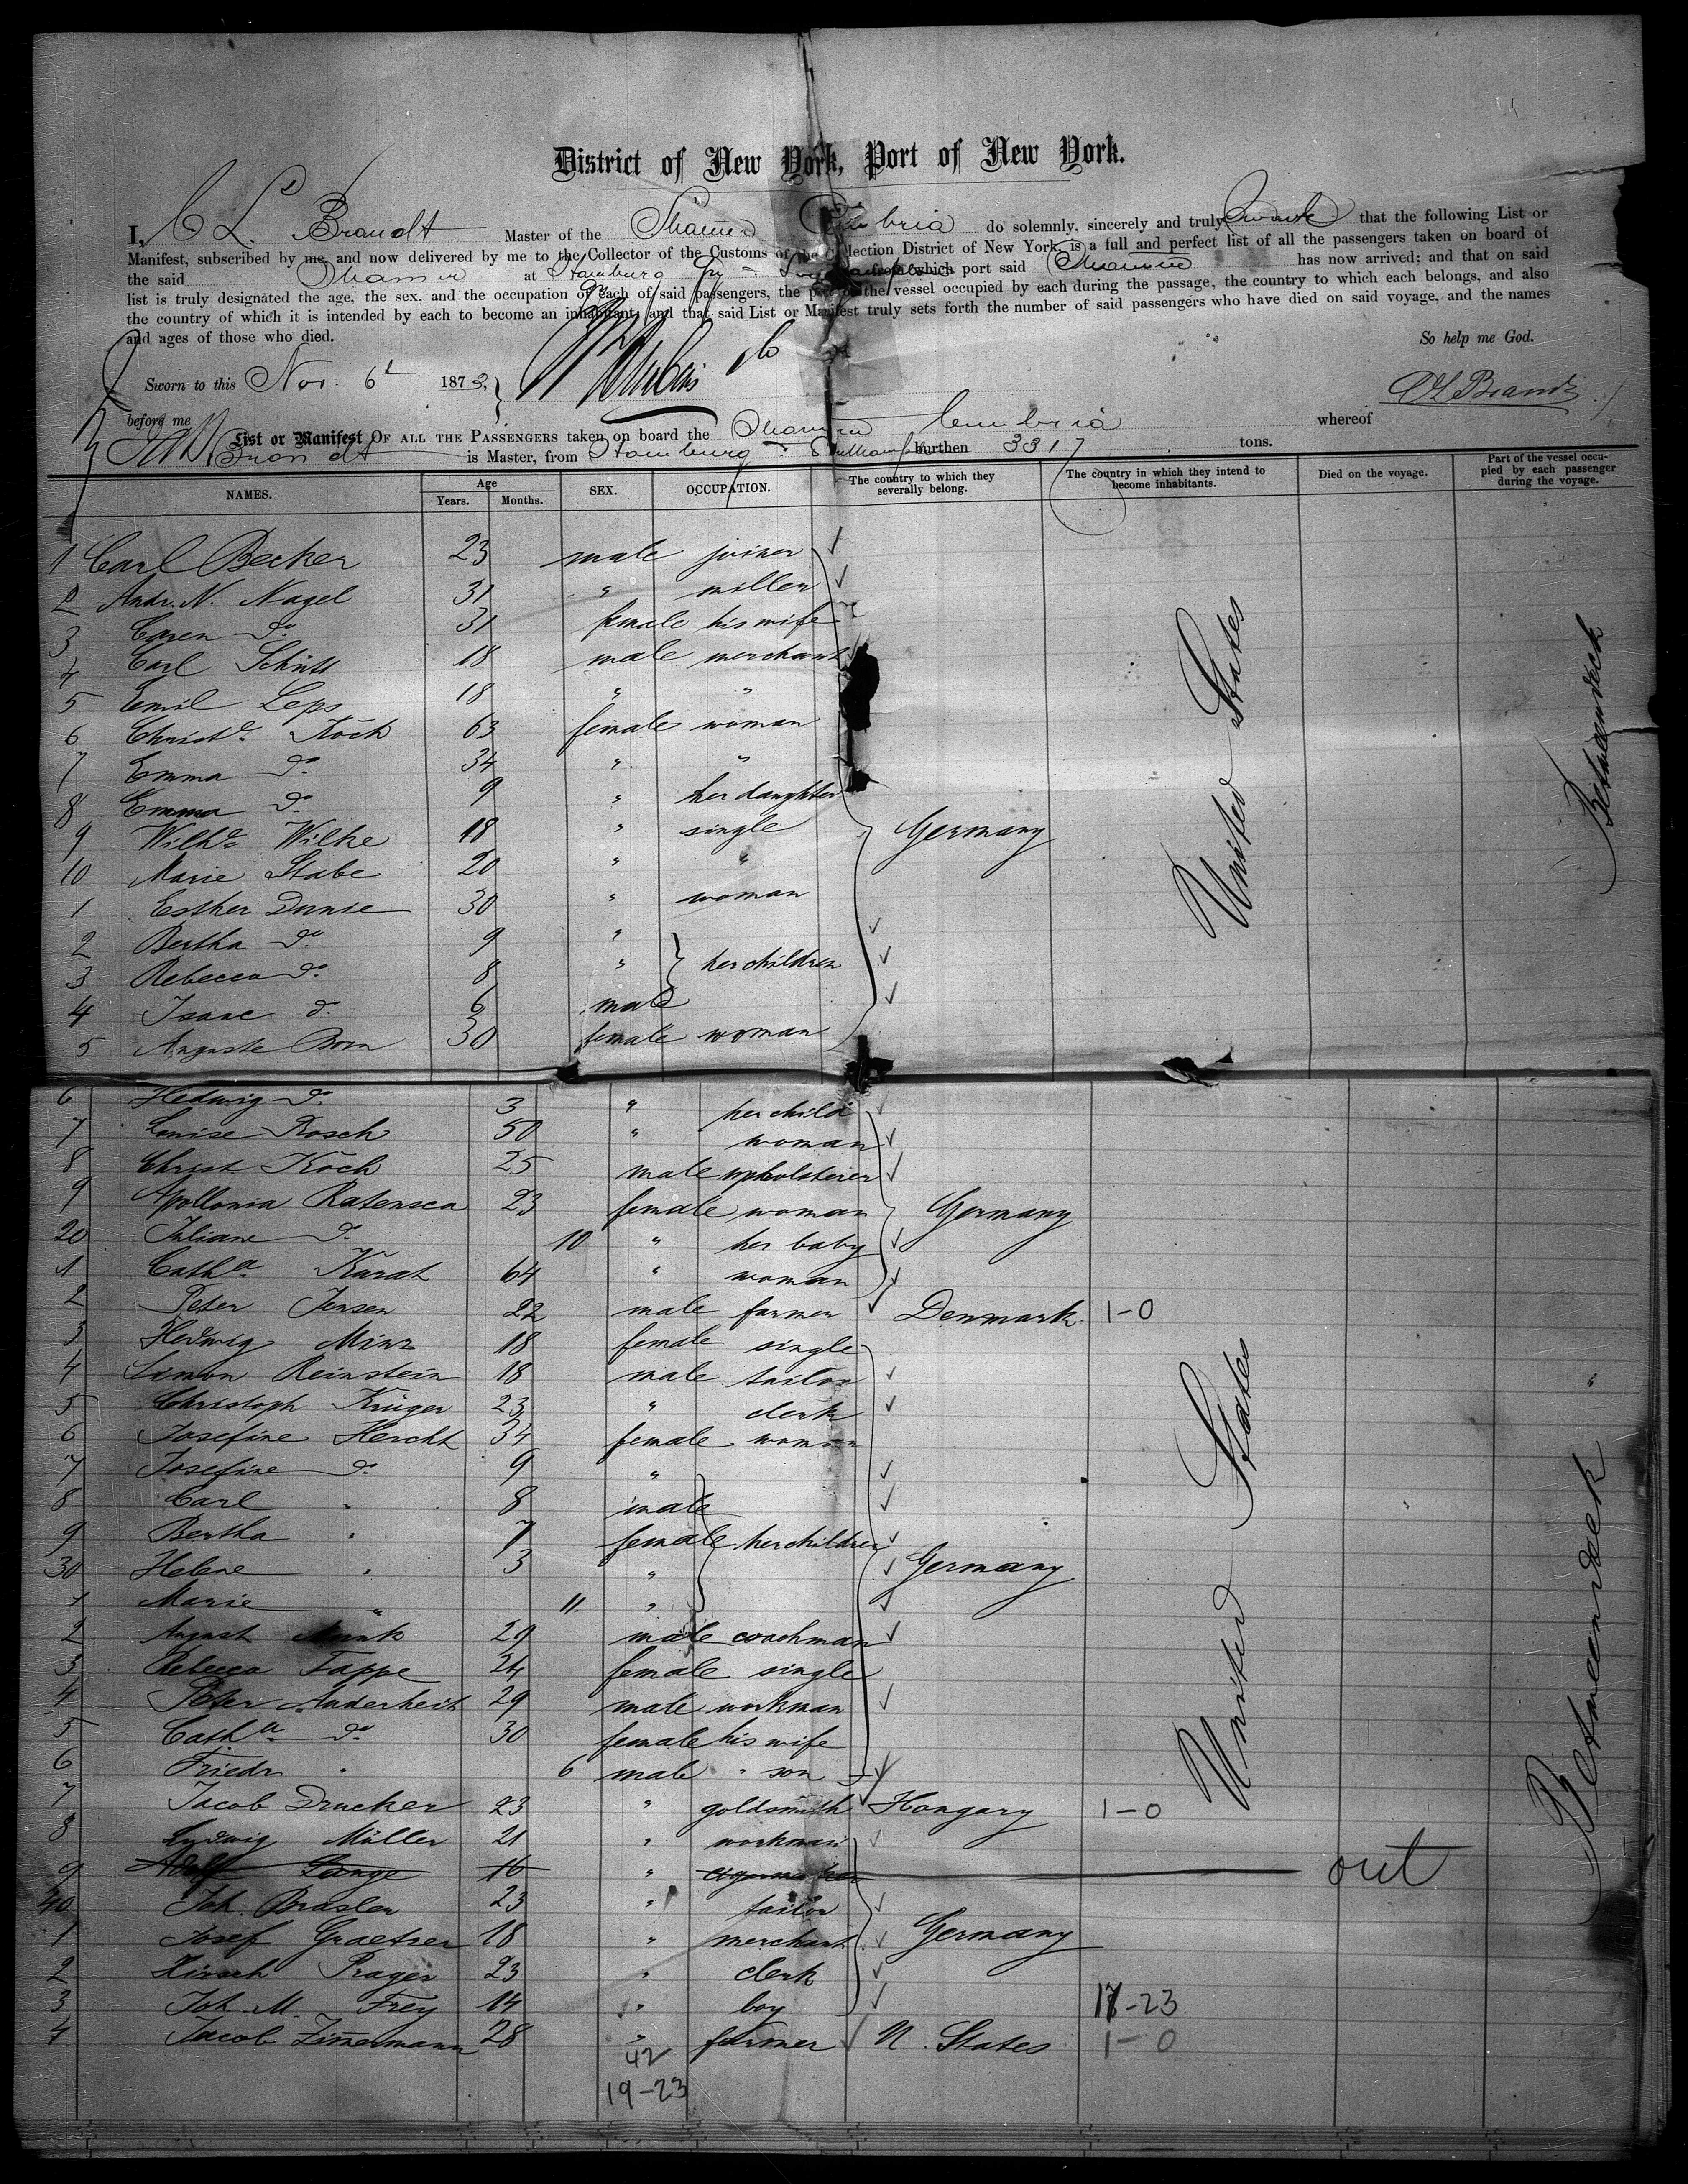 District of New York, Port of New York.
I, C L Brandt Master of the Steamer Cimbria do solemnly, sincerely and truly swear that the following List or
Manifest, subscribed by me, and now delivered by me to the Collector of the Customs of the Collection District of New York, is a full and perfect list of all the passengers taken on board of
the said Steamer at Hamburg from which port said Steamer has now arrived: and that on said
list is truly designated the age, the sex, and the occupation of each of said passengers, the part of the vessel occupied by each during the passage, the country to which each belongs, and also
the country of which it is intended by each to become an inhabitant; and that said List or Manifest truly sets forth the number of said passengers who have died on said voyage, and the names
and ages of those who died.
So help me God.
Sworn to this Nov. 6th 1873,
before me
C L Brandt
List or Manifest OF ALL THE PASSENGERS taken on board the Steamer Cimbria whereof
Brandt is Master, from Hamburg Southampton burthen 3317 tons.
NAMES. Age Years. Months. SEX. OCCUPATION. The country to which they severally belong. The country in which they intend to become inhabitants. Died on the voyage. Part of the vessel occupied by each passenger during the voyage.
1 Carl Becker 23 male joiner
2 Andr. N. Nagel 31 " miller
3 Caren do 31 female his wife
4 Carl Schütt 18 male merchant
5 Emil Leps 18 " "
6 Christe Koch 63 female woman
7 Emma do 34 " "
8 Emma do 9 " her daughter
9 Wilhe Wilke 18 " single Germany United States Betweendeck
10 Marie Stabe 20 " "
1 Esther Dunie 30 " woman
2 Bertha do 9 "
3 Rebecca do 8 " her children
4 Isaac do 6 male
5 Auguste Born 30 female woman
6 Hedwig do 3 " her child
7 Louise Rosch 50 " woman
8 Christ Koch 25 male upholsterer
9 Apollonia Ratensca 23 female woman Germany
20 Juliane do 10 " her baby
1 Catha Kurat 64 " woman
2 Peter Jensen 22 male farmer Denmark 1-0
3 Hedwig Minz 18 female single
4 Simon Reinstein 18 male tailor
5 Christoph Krüger 23 " clerk
6 Josefine Hercht 34 female woman
7 Josefine do 9 "
8 Carl " 8 male
9 Bertha " 7 female her children
30 Helene " 3 " Germany United States Betweendeck
1 Marie " 11 "
2 August 29 male coachman
3 Rebecca Tappe 24 female single
4 Peter Anderheit 29 male workman
5 Catha do 30 female his wife
6 Friedr " 6 male " son
7 Jacob Drucker 23 " goldsmith Hongary 1-0
8 Ludwig Müller 21 " workman
9 Adolf Lange 16 " cigarmaker out
40 Joh. Braslen 23 " tailor
1 Josef Graetzer 18 " merchant Germany
2 Hirsch Prager 23 " clerk
3 Joh. M. Frey 14 " boy 18-23
4 Jacob Zimmermann 28 " farmer U. States 1-0
42
19-23